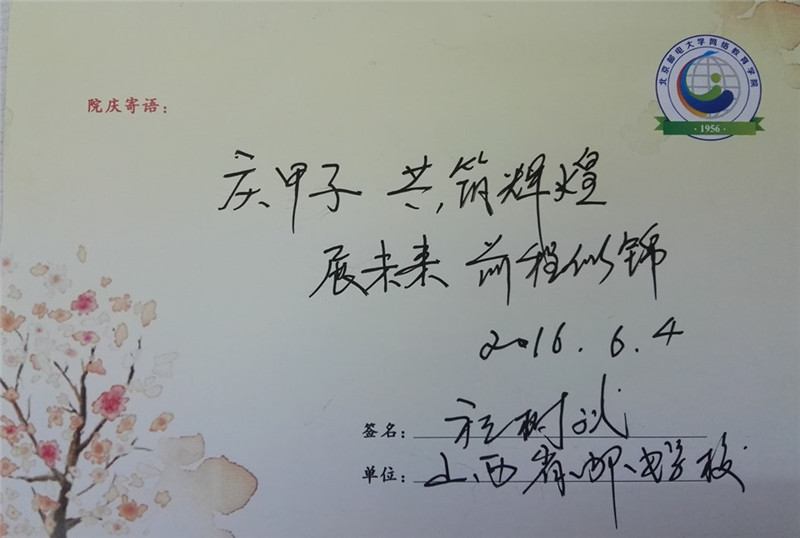 北京邮电大学网络教育学院
·1956·
院庆寄语：
庆甲子 共筑辉煌
展未来 前程似锦
2016.6.4
签名：树武
单位：山西省邮电学校